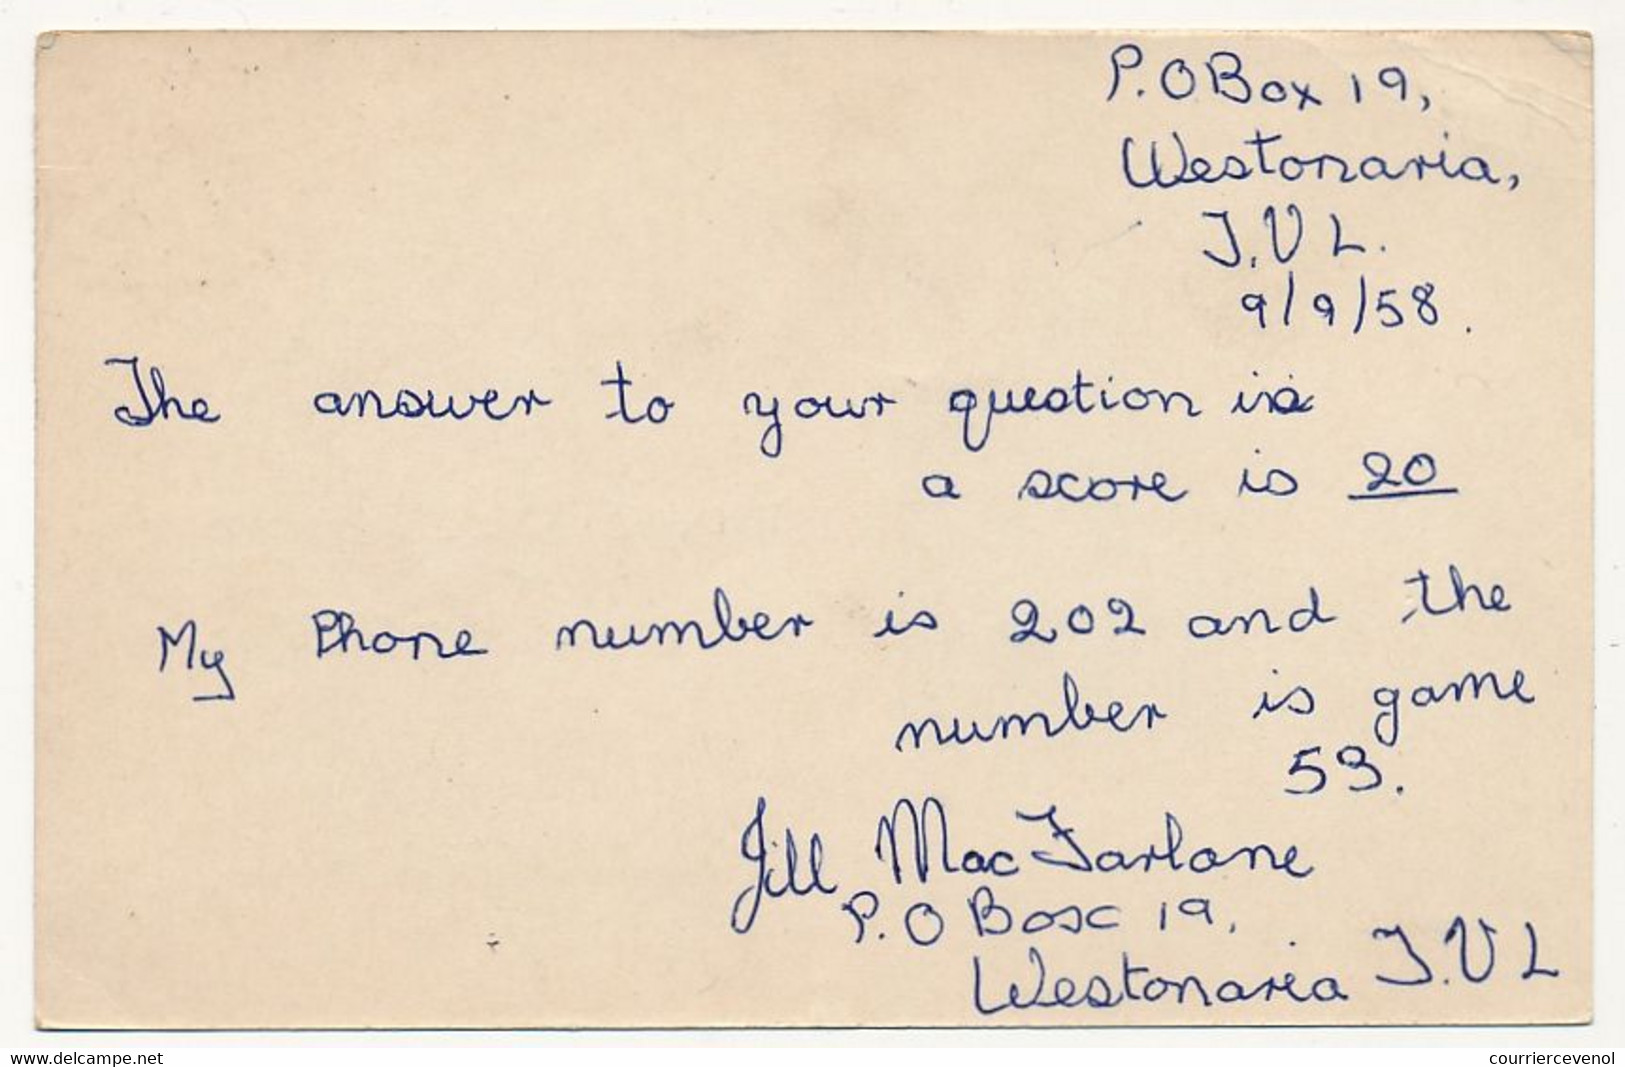 P.O Box 19,
Westonaria,
T.V L.
9/9/58.
The answer to your question is
a score is 20
My Phone number is 202 and the
number is game
53.
Jill MacFarlane
P.O Box 19,
Westonaria T.V L
www.delcampe.net
courriercevenol